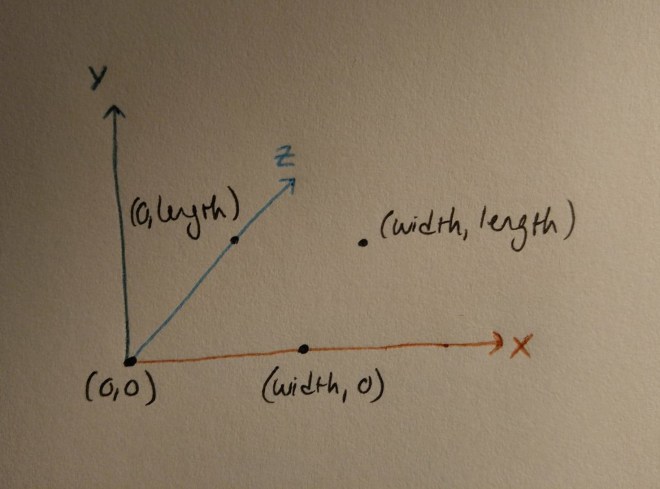 Y
Z
(0,length)
(width, length)
X
(0,0)
(width, 0)